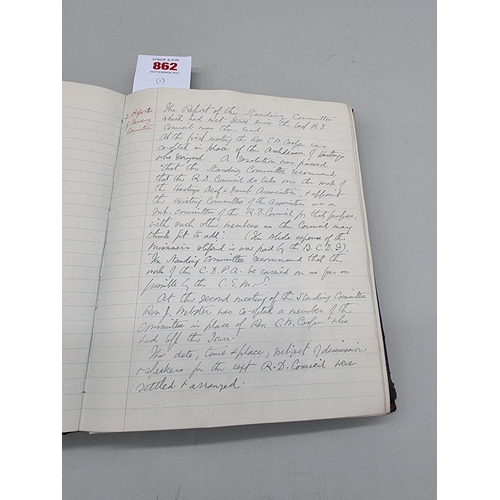 862
SEPTEMBER 2022
(1)
2. Reports
of Standing
Committee
The Report of the Standing Committee
which had met twice since the last R.D.
Council was then read
At the first meeting the Rev. C.W. Cooper was
co-opted in place of the Archdeacon of Hastings
who resigned. A Resolution was passed
"that the Standing Committee recommend
that the R.D. Council do take over the work of
the Hastings Deaf & Dumb Association, & appoint
the existing Committee of the Association as a
Sub. committee of the R.D. Council for that purpose,
with such other members as the Council may
think fit to add." (The whole expense of the
Missioners stipend is was paid by the B.C.D.D.).
"The Standing Committee recommend that the
work of the C.D.P.A. be carried on as far as
possible by the C.E.M.S."
At the second meeting of the Standing Committee
Rev. J. Webster was co-opted a member of the
committee in place of Rev. C.W. Cooper who
had left the Town.
The date, time & place, subject of discussion
& speakers for the next R.D. Council were
settled & arranged.